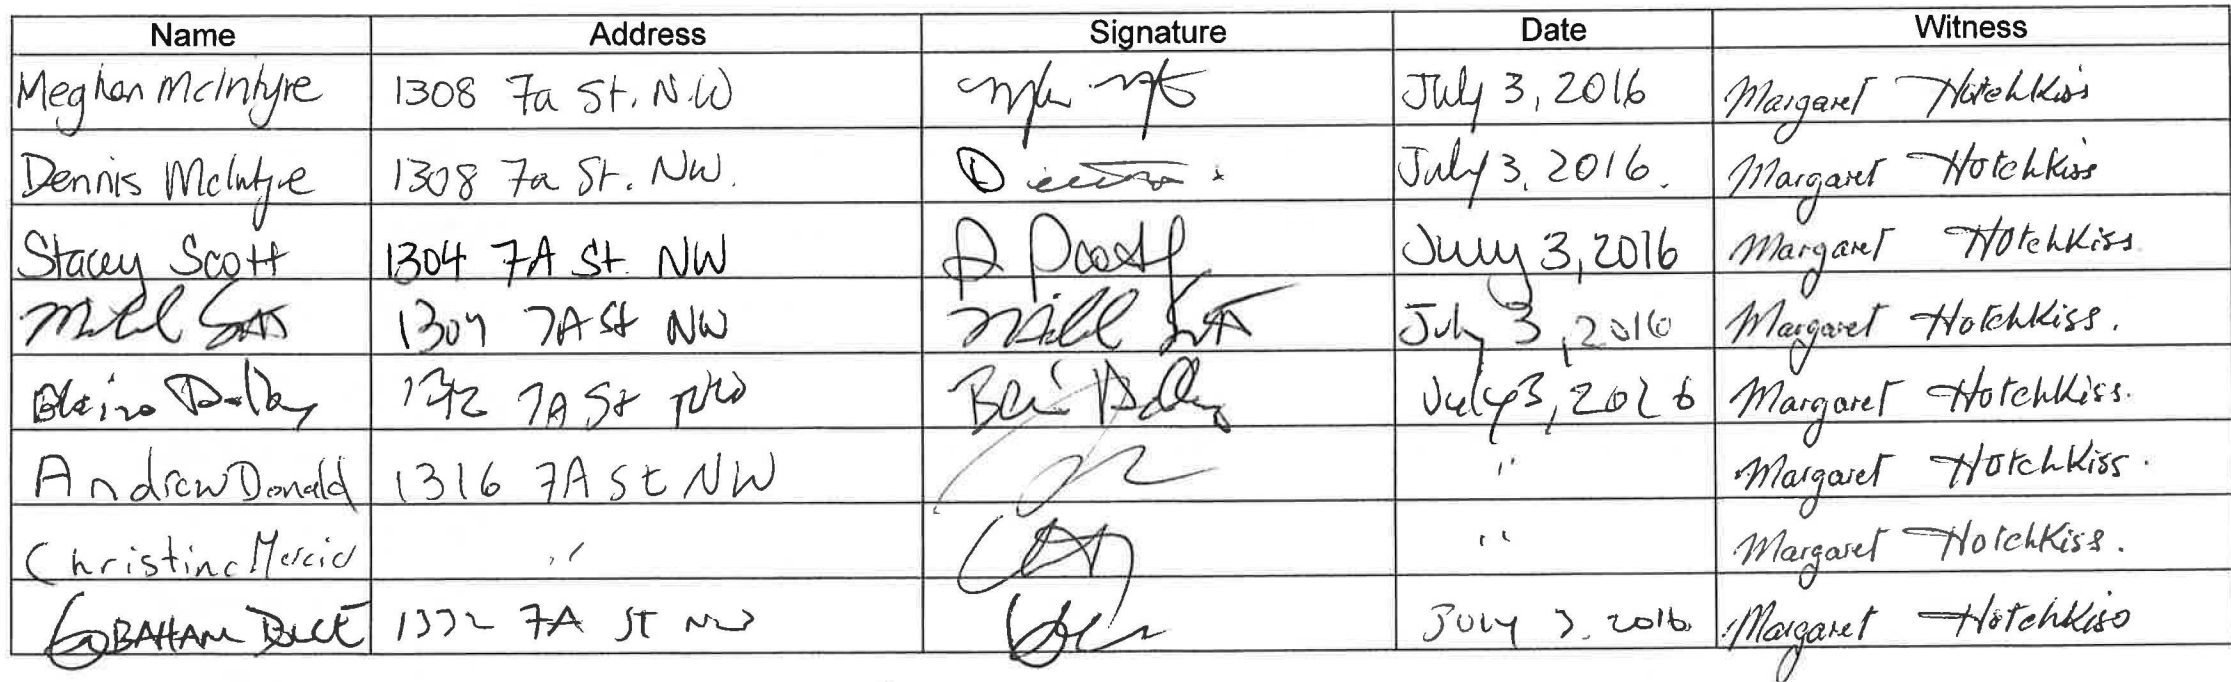 Name Address Signature Date Witness
Meghan McIntyre 1308 7a St. N.W July 3, 2016 Margaret Hotchkiss
Dennis McIntyre 1308 7a St. NW. July 3, 2016. Margaret Hotchkiss
Stacey Scott 1304 7A St. NW July 3, 2016 Margaret Hotchkiss
1304 7A St NW July 3, 2016 Margaret Hotchkiss.
7A St NW July 3, 2016 Margaret Hotchkiss.
Andrew Donald 1316 7A St NW " Margaret Hotchkiss.
Christine " " Margaret Hotchkiss.
7A ST NW July 3. 2016. Margaret Hotchkiss